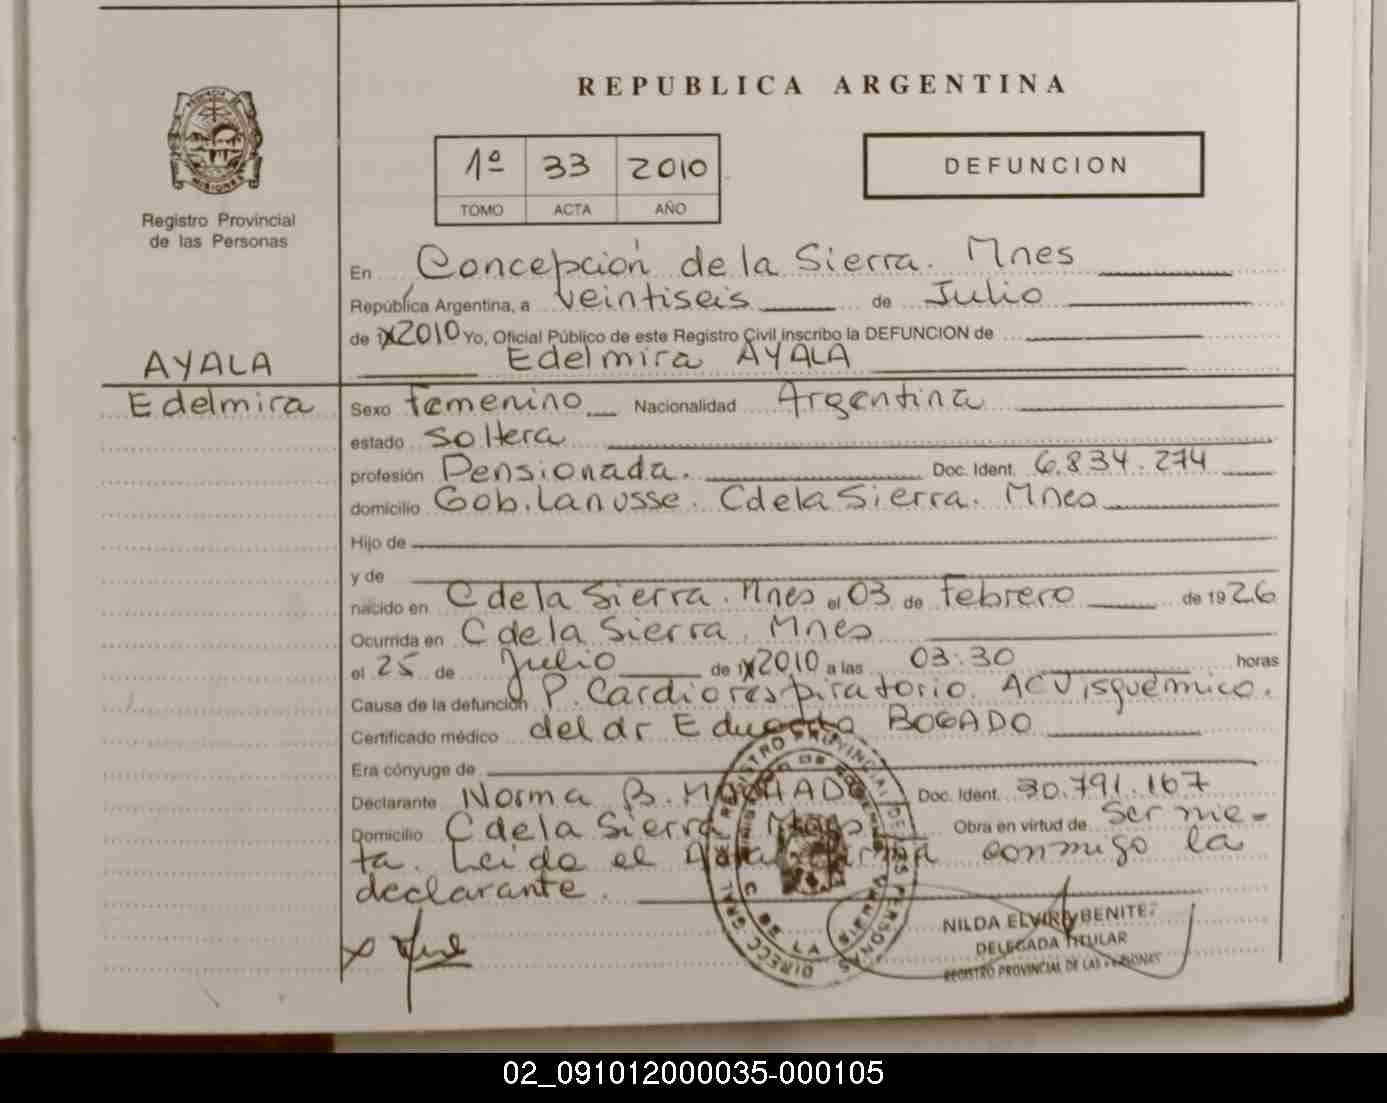 REPUBLICA ARGENTINA
PROVINCIA DE MISIONES
Registro Provincial
de las Personas
1º 33 2010
TOMO ACTA AÑO
DEFUNCION
En Concepción de la Sierra. Mnes
República Argentina, a veintiseis de Julio
de 2010 Yo, Oficial Público de este Registro Civil inscribo la DEFUNCION de
Edelmira AYALA
AYALA
Edelmira
Sexo Femenino Nacionalidad Argentina
estado Soltera
profesión Pensionada. Doc. Ident. 6.834.274
domicilio Gob. Lanusse. C de la Sierra. Mnes
Hijo de
y de
nacido en C de la Sierra. Mnes el 03 de Febrero de 1926
Ocurrida en C de la Sierra. Mnes
el 25 de Julio de 2010 a las 03:30 horas
Causa de la defunción P. Cardiorespiratorio. ACV isquémico.
Certificado médico del dr Eduardo BOGADO
Era cónyuge de
Declarante Norma B. MACHADO Doc. Ident. 30.791.167
Domicilio C de la Sierra Mnes Obra en virtud de Ser nie-
ta. Leida el Acta firma conmigo la
declarante.
DIRECC GRAL DE REGISTRO PROVINCIAL DE LAS PERSONAS
MINISTERIO DE GOBIERNO
C DE LA SIERRA
NILDA ELVIRA BENITEZ
DELEGADA TITULAR
REGISTRO PROVINCIAL DE LAS PERSONAS
02_091012000035-000105